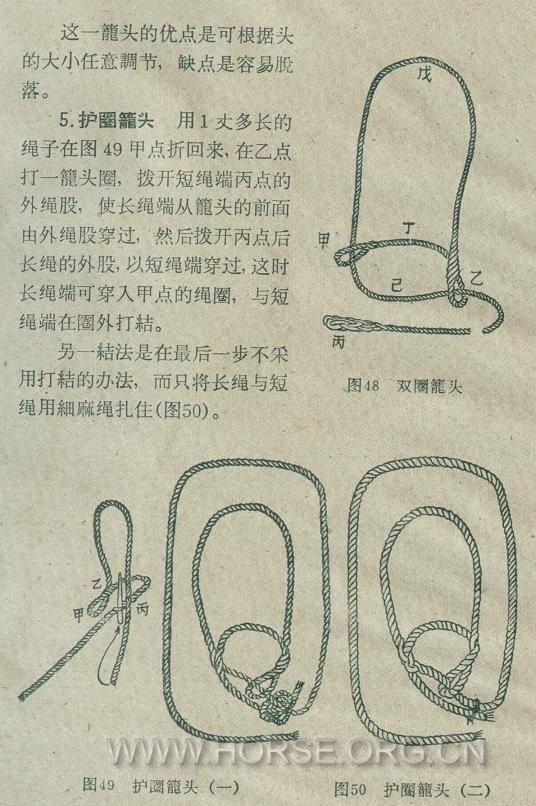 这一籠头的优点是可根据头
的大小任意調节，缺点是容易脫
落。
5.护圈籠头　用1丈多长的
绳子在图49甲点折回来，在乙点
打一籠头圈，拨开短绳端丙点的
外绳股，使长绳端从籠头的前面
由外绳股穿过，然后拨开丙点后
长绳的外股，以短绳端穿过，这时
长绳端可穿入甲点的绳圈，与短
绳端在圈外打結。
另一結法是在最后一步不采
用打結的办法，而只将长绳与短
绳用細麻绳扎住(图50)。
戊
甲
丁
乙
己
丙
图48　双圈籠头
乙
甲
丙
图49　护圈籠头（一）
图50　护圈籠头（二）
WWW.HORSE.ORG.CN